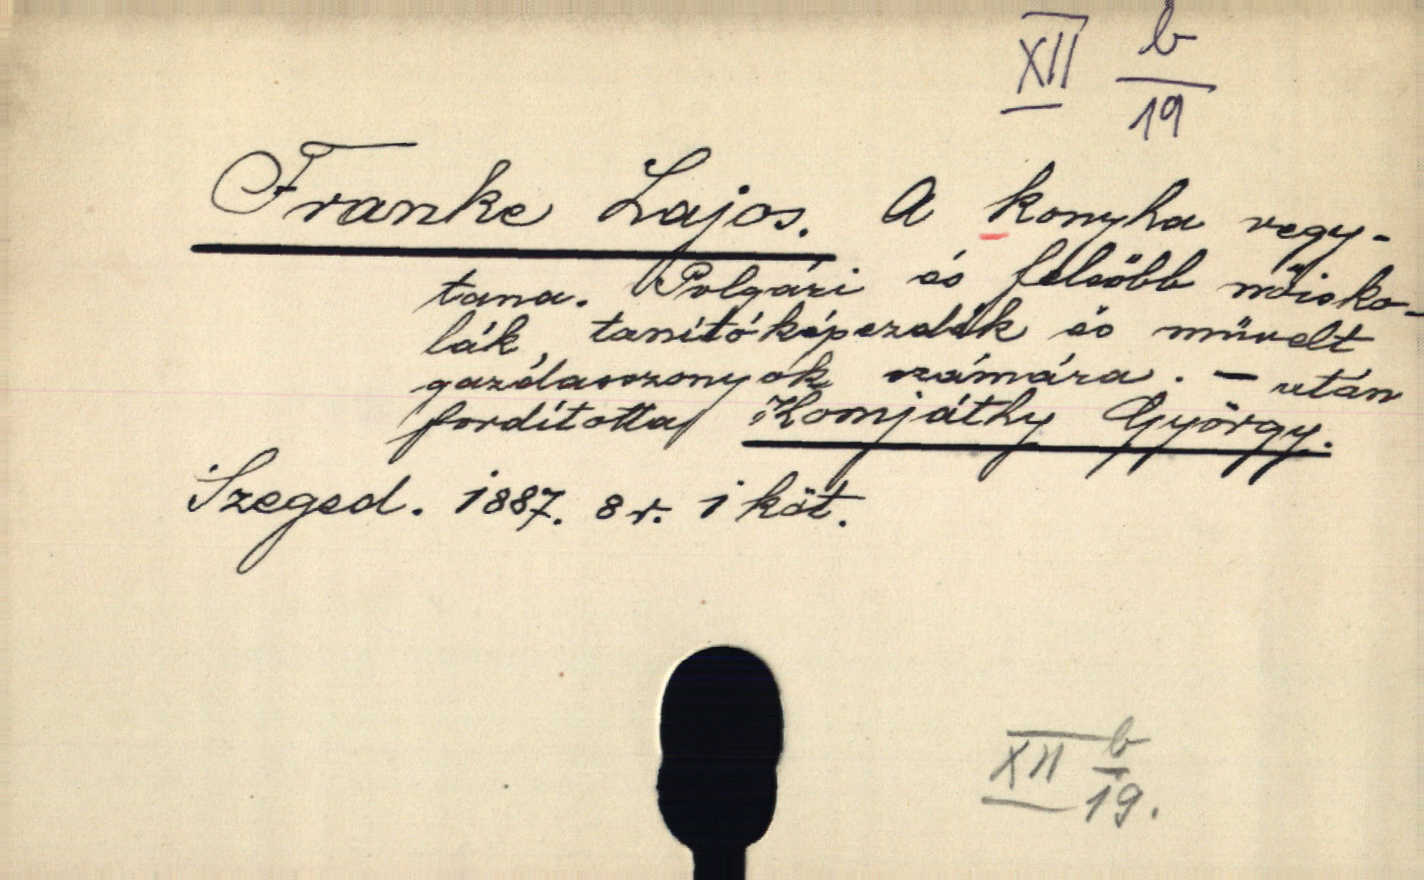 XII b/19
Franke Lajos. A konyha vegy-
tana. Polgári és felsőbb nőisko-
lák, tanítóképezdék és művelt
gazdasszonyok számára. — után
fordította Komjáthy György.
Szeged. 1887. 8 r. 1 köt.
XII b/19.